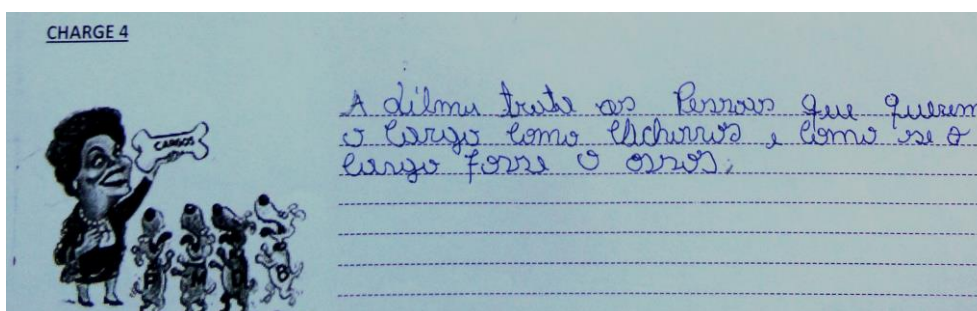 CHARGE 4
CARGOS
P M D B
A dilma trata as Pessoas que querem
o cargo como cachorros e como se o
cargo fosse o ossos.